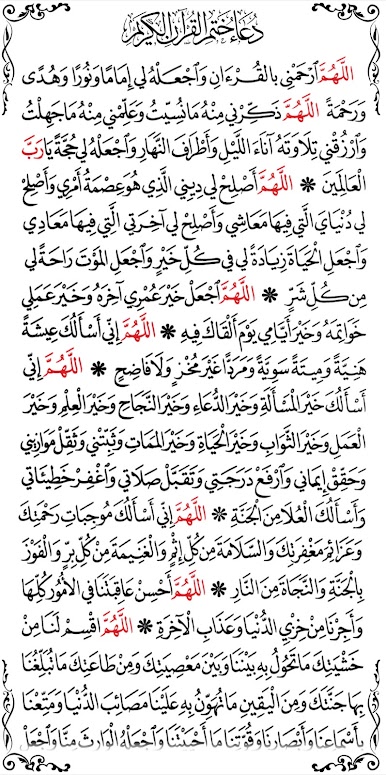 دُعَاءُ خَتْمِ الْقُرْآنِ الْكَرِيمِ
اللَّهُمَّ ٱرْحَمْنِي بِالقُرْءَانِ وَٱجْعَلْهُ لِي إِمَامًا وَنُورًا وَهُدًى
وَرَحْمَةً اللَّهُمَّ ذَكِّرْنِي مِنْهُ مَا نُسِّيتُ وَعَلِّمْنِي مِنْهُ مَا جَهِلْتُ
وَٱرْزُقْنِي تِلَاوَتَهُ آنَاءَ اللَّيْلِ وَأَطْرَافَ النَّهَارِ وَٱجْعَلْهُ لِي حُجَّةً يَا رَبَّ
الْعَالَمِينَ * اللَّهُمَّ أَصْلِحْ لِي دِينِي الَّذِي هُوَ عِصْمَةُ أَمْرِي وَأَصْلِحْ
لِي دُنْيَايَ الَّتِي فِيهَا مَعَاشِي وَأَصْلِحْ لِي آخِرَتِي الَّتِي فِيهَا مَعَادِي
وَٱجْعَلِ الْحَيَاةَ زِيَادَةً لِي فِي كُلِّ خَيْرٍ وَٱجْعَلِ الْمَوْتَ رَاحَةً لِي
مِن كُلِّ شَرٍّ * اللَّهُمَّ ٱجْعَلْ خَيْرَ عُمْرِي آخِرَهُ وَخَيْرَ عَمَلِي
خَوَاتِمَهُ وَخَيْرَ أَيَّامِي يَوْمَ أَلْقَاكَ فِيهِ * اللَّهُمَّ إِنِّي أَسْأَلُكَ عِيشَةً
هَنِيَّةً وَمِيتَةً سَوِيَّةً وَمَرَدًّا غَيْرَ مُخْزٍ وَلَا فَاضِحٍ * اللَّهُمَّ إِنِّي
أَسْأَلُكَ خَيْرَ الْمَسْأَلَةِ وَخَيْرَ الدُّعَاءِ وَخَيْرَ النَّجَاحِ وَخَيْرَ الْعِلْمِ وَخَيْرَ
الْعَمَلِ وَخَيْرَ الثَّوَابِ وَخَيْرَ الْحَيَاةِ وَخَيْرَ الْمَمَاتِ وَثَبِّتْنِي وَثَقِّلْ مَوَازِينِي
وَحَقِّقْ إِيمَانِي وَٱرْفَعْ دَرَجَتِي وَتَقَبَّلْ صَلَاتِي وَٱغْفِرْ خَطِيئَاتِي
وَأَسْأَلُكَ الْعُلَا مِنَ الْجَنَّةِ * اللَّهُمَّ إِنِّي أَسْأَلُكَ مُوجِبَاتِ رَحْمَتِكَ
وَعَزَائِمَ مَغْفِرَتِكَ وَالسَّلَامَةَ مِن كُلِّ إِثْمٍ وَالْغَنِيمَةَ مِن كُلِّ بِرٍّ وَالْفَوْزَ
بِالْجَنَّةِ وَالنَّجَاةَ مِنَ النَّارِ * اللَّهُمَّ أَحْسِنْ عَاقِبَتَنَا فِي الْأُمُورِ كُلِّهَا
وَأَجِرْنَا مِنْ خِزْيِ الدُّنْيَا وَعَذَابِ الْآخِرَةِ * اللَّهُمَّ اقْسِمْ لَنَا مِنْ
خَشْيَتِكَ مَا تَحُولُ بِهِ بَيْنَنَا وَبَيْنَ مَعْصِيَتِكَ وَمِنْ طَاعَتِكَ مَا تُبَلِّغُنَا
بِهَا جَنَّتَكَ وَمِنَ الْيَقِينِ مَا تُهَوِّنُ بِهِ عَلَيْنَا مَصَائِبَ الدُّنْيَا وَمَتِّعْنَا
بِأَسْمَاعِنَا وَأَبْصَارِنَا وَقُوَّتِنَا مَا أَحْيَيْتَنَا وَٱجْعَلْهُ الْوَارِثَ مِنَّا وَٱجْعَلْ